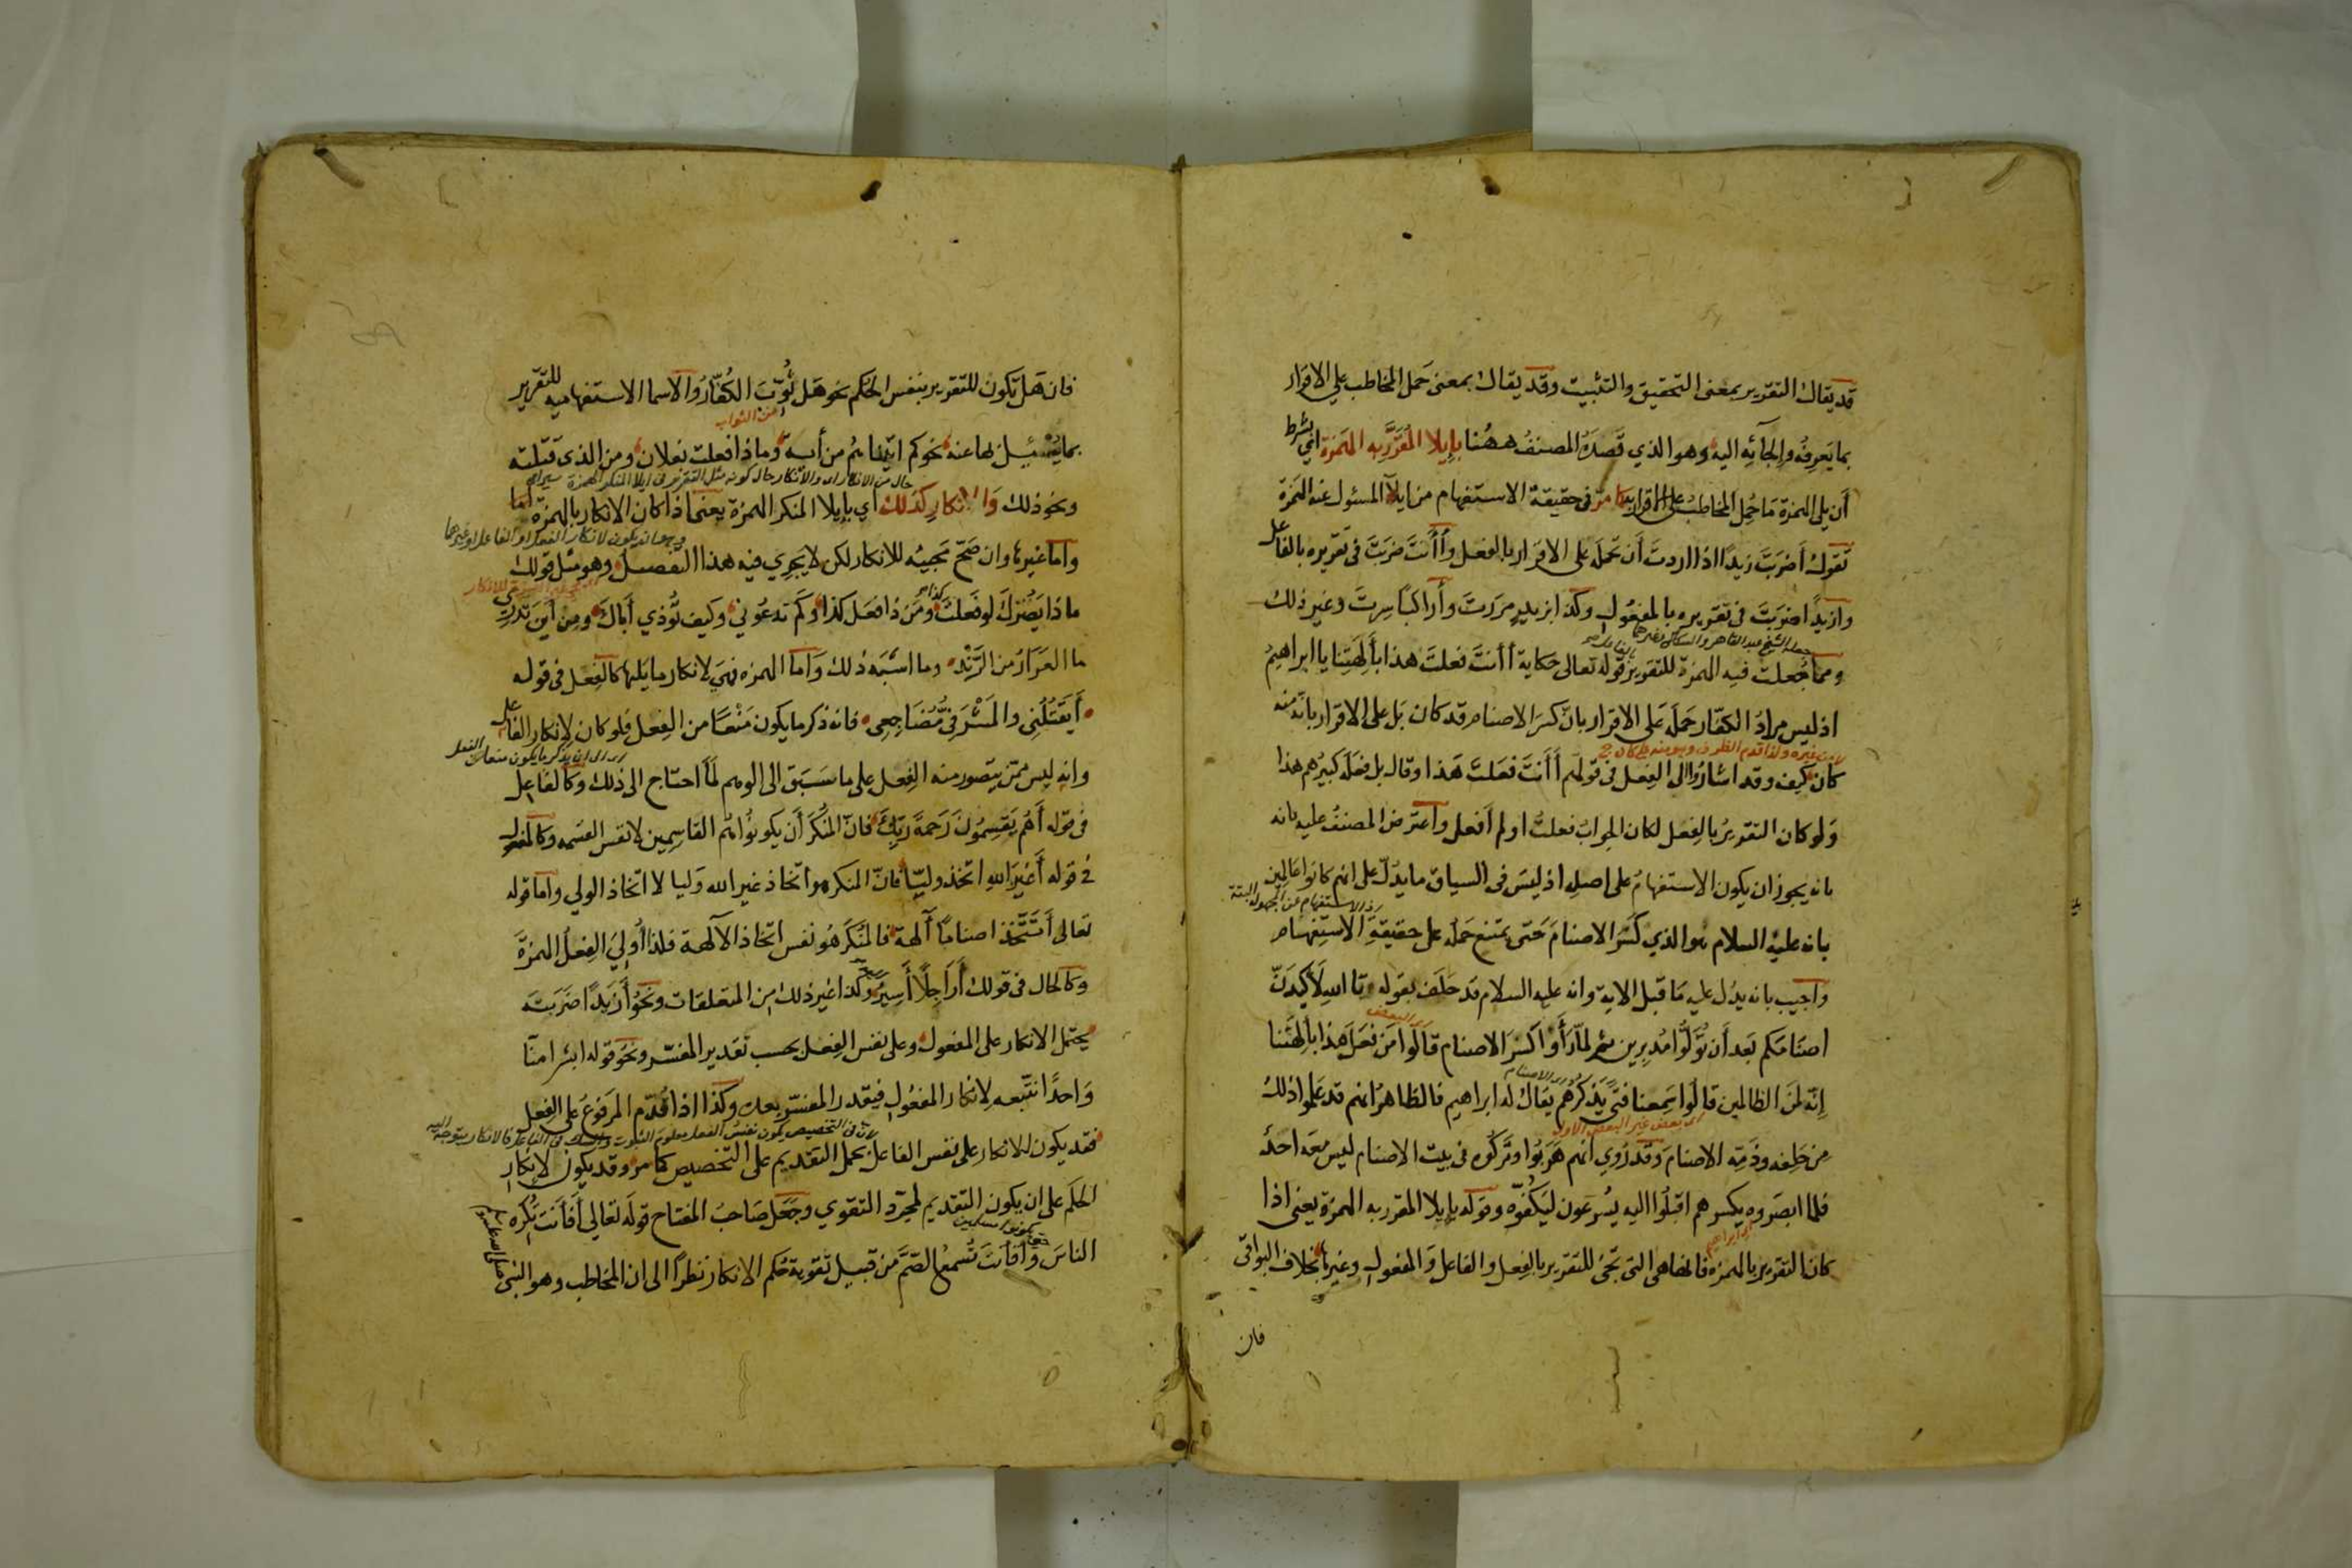 قد يقال التقرير بمعنى التحقيق والتثبيت وقد يقال بمعنى حَمل المخاطب علي الاقرار
بما يَعرِفُه وإلجائِه اليه وهو الذي قَصدَهُ المصنفُ ههُنا بإيلا المُقَرَّرِ به الهَمزة اي بشرط
أن يلى الهمزة مَا حُمِل المخاطبُ على الاقرار به كما مرّ فى حقيقة الاستفهام من ايلآ المسئول عنه الهَمزة
تقول أضربَتَ زيدًا اذا اردتَ أن تحمله على الاقرار بالفعل وأأنتَ ضربَتَ فى تقريره بالفاعل
وازيدًا ضربَتَ فى تقريره بالمفعُول وكذا ابزيدٍ مررتَ وأراكبًا سِرتَ وغير ذلك
جعله الشيخ عبد القاهر والسكاكى وغيرهما
ومما جُعلت فيه الهمزة للتقرير قوله تعالى حكاية أأنتَ فعلتَ هذا بآلِهَتِنا يا ابراهيمُ
اذ ليس مرادُ الكفّار حَملَه عَلى الاقرار بانّ كسرَ الاصنام قد كان بَل على الاقرار بانه منه
كان كيف وقد اشارُوا الى الفِعل فى قولهم أأنتَ فعَلتَ هَذا وقال بل فعَلَه كبيرُهم هذا
وَلو كان التقريرُ بالفِعل لكان الجوابُ فعلتُ او لم أفعل واعترض المصنفُ عليه بانه
بانه يجوز ان يكون الاستفهامُ على اصلِه اذ ليسَ فى السياق ما يدُلّ على انهم كانوا عَالِمِين
بانه عليه السلام هو الذي كَسَر الاصنامَ حَتى يمتنع حَمله على حقيقةِ الاستِفهام
واجيب بانه يدُل عليه مَا قبل الاية وانه عليه السلام قد حَلَف بقوله تا الله لأكيدَنّ
اصنَامَكم بَعد أن تُوَلُّوا مُدبِرين ثم لمّا رَأَوا كسَر الاصنام قَالَوا مَن فعَلَ هَذا بآلِهَتِنا
إنّه لمنَ الظالمين قالُوا سَمِعنا فتًى يَذكرُهُم يقالُ لَه ابراهيم فالظاهرُ انهم قد عَلِموا ذلك
اى بعض غير البعض الاول
مِن حَلِفه وذَمّه الاصنامَ وَقَد رُوي انهم هَرَبُوا وتَركُوه فى بيت الاصنام ليس مَعَه احدٌ
فلما ابصَروه يكسرهم اقبلُوا اليه يُسرعون ليَكُفوّه وقوله بإيلا المقرر به الهمزة يعنى اذا
كان التقرير بالهمزة فانها هى التى تجئ للتقرير بالفعل والفاعل وَالمفعول وغيرها بخلاف البواقى
فان
فان هَل تكون للتقرير بنفس الحكم نحو هَل ثُوّبَ الكُفّارُ والاسما الاستفهاميه للتقرير
من الثواب
بما يُسئل بها عنه نحو كم اتَينَاهُم من أيةٍ وماذا فعلت بفلان ومن الذى قتلته
ونحو ذلك وَالانكارِ كذلك اي بإيلا المنكر الهمزة يعنى اذا كان الانكار بالهمزة اما
وأما غيرها وان صَحّ مَجيئه للانكار لكن لا يَجرِي فيه هذا التفصيل وهو مثل قولك
ماذا يَضُرّك لو فعلتَ ومَن ذا فعَل كذا وكَم تدعُوني وكيف تُؤذي أباك ومن أين تَدرى
ما العَرَارُ من الرَّنْدِ وما اشبَه ذلك وَاما الهمزه فهَي لانكار ما يَليها كالفِعل فى قوله
أَيَقتُلُنى والمَشرَفِىُّ مُضَاجِعِى فانه ذكر ما يكون مَنْعًا من الفِعل فلو كان لإنكار الفاعل
وانه ليس مِمّن يتصور منه الفِعل على ما سَبَق الى الوهم لَمَا احتاج الى ذلك وكالفَاعِل
فى قوله أهُم يَقسِمُونَ رَحمةَ رَبِّكَ فانّ المُنكَر أن يكونُوا هُم القاسِمِين لا نفس القسمه وكالمفعول
فى قوله أغَيرَ اللهِ اتخذ وليّا فانّ المنكر هو اتخاذ غير الله وَليا لا اتخاذ الولي وأما قوله
تعالى أَتَتَّخِذ اصنامًا آلهة فالمُنكَر هُو نفس اتخاذ الآلهة فلذا أُولِيَ الفِعلُ الهمزةَ
وكالحال فى قولك أَرَاجِلًا أَسِيرُ وكذا غير ذلك من المتعلقات ونحوُ أزيدًا ضَرَبتَه
يحتمل الانكار على المفعول وعلى نفس الفِعل بحسب تقدير المفسّر ونحوُ قوله ابشرا منّا
وَاحدًا نتّبعه لإنكار المفعُول فيقدر المفسّر بعده وكذا اذا قُدّم المَرفوعُ على الفِعل
فقد يكون للانكار على نفس الفاعل بحمل التقديم على التخصيص كما مر وقد يكون لإنكار
الحكم على ان يكون التقديم لمجرّد التقوي وجَعَل صَاحبُ المفتاح قولَه تعالي أفأنت تُكره
الناسَ وأفأنتَ تُسمعُ الصّمّ من قبيل تقوية حُكم الانكار نظرًا الى ان المخاطب وهو النبى صلى الله عليه وسلم